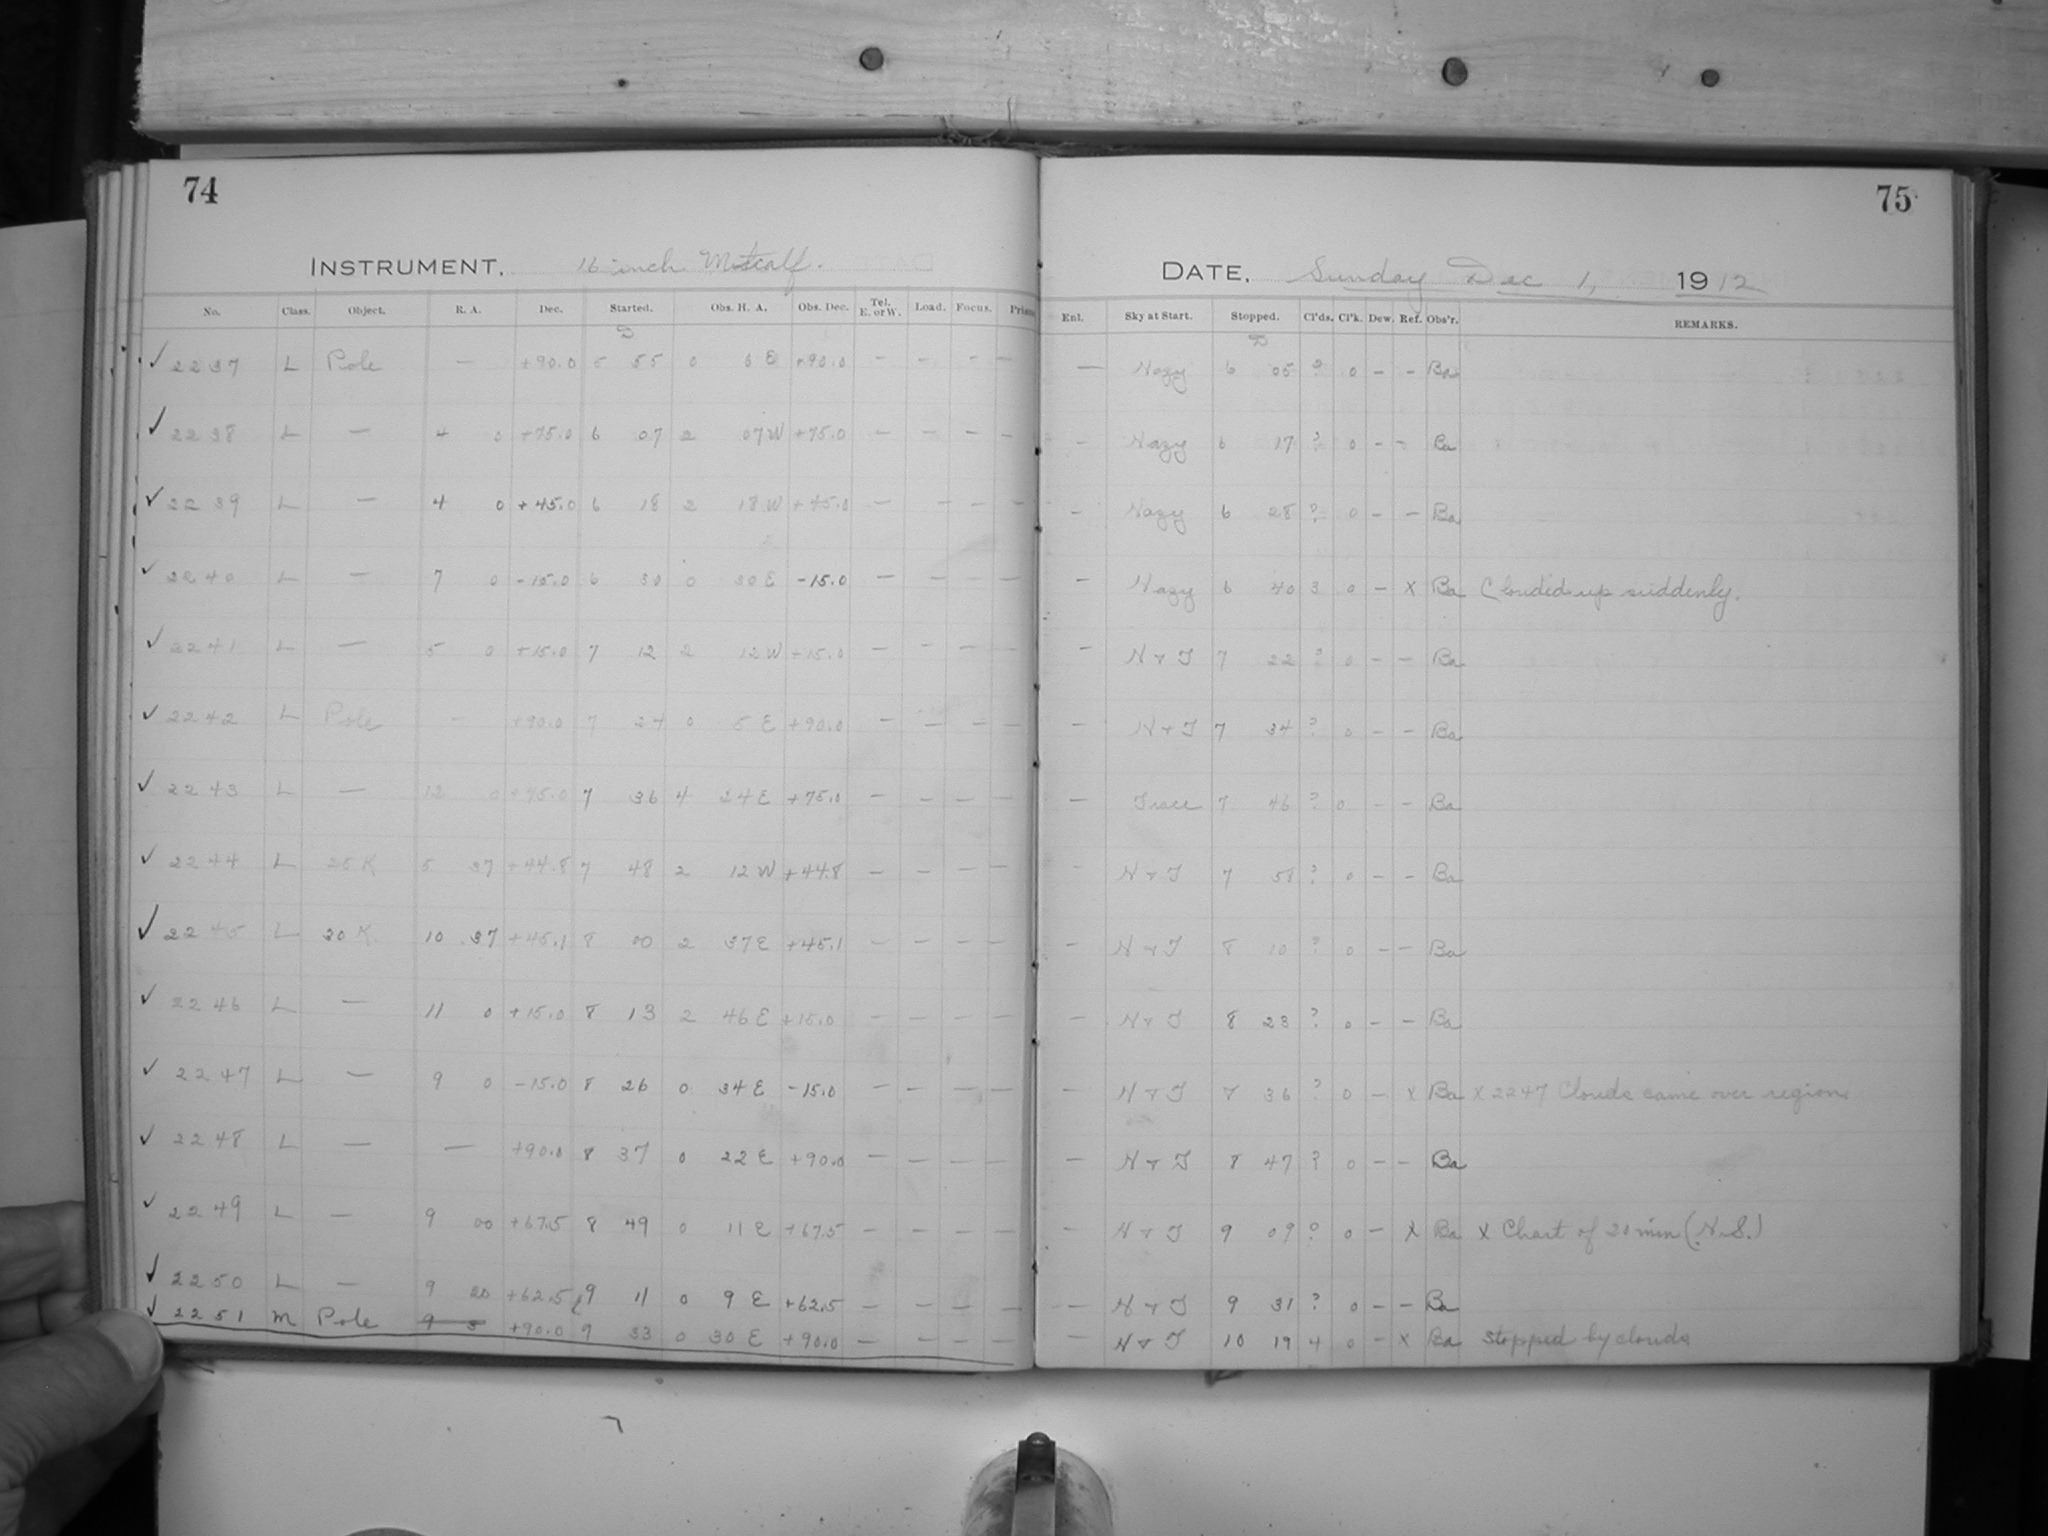 74
INSTRUMENT. 16 inch Metcalf.
No. Class. Object. R. A. Dec. Started. Obs. H. A. Obs. Dec. Tel. E. or W. Load. Focus. Prism
2237 L Pole — +90.0 5 55 0 6 E +90.0 — — — —
✓ 2238 L — 4 0 +75.0 6 07 2 07 W +75.0 — — — —
✓ 2239 L — 4 0 +45.0 6 18 2 18 W +45.0 — — — —
✓ 2240 L — 7 0 -15.0 6 30 0 30 E -15.0 — — — —
✓ 2241 L — 5 0 +15.0 7 12 2 12 W +15.0 — — — —
✓ 2242 L Pole — +90.0 7 24 0 5 E +90.0 — — — —
✓ 2243 L — 12 0 +75.0 7 36 4 24 E +75.0 — — — —
✓ 2244 L 25 K 5 37 +44.8 7 48 2 12 W +44.8 — — — —
✓ 2245 L 30 K 10 37 +45.1 8 00 2 37 E +45.1 — — — —
✓ 2246 L — 11 0 +15.0 8 13 2 46 E +15.0 — — — —
✓ 2247 L — 9 0 -15.0 8 26 0 34 E -15.0 — — — —
✓ 2248 L — — +90.0 8 37 0 22 E +90.0 — — — —
✓ 2249 L — 9 00 +67.5 8 49 0 11 E +67.5 — — — —
✓ 2250 L — 9 20 +62.5 9 11 0 9 E +62.5 — — — —
✓ 2251 M Pole +90.0 9 33 0 30 E +90.0 — — — —
75
DATE. Sunday Dec 1, 1912
Enl. Sky at Start. Stopped. Cl'ds. Cl'k. Dew. Ref. Obs'r. REMARKS.
— Hazy 6 05 ? 0 — — Ba
— Hazy 6 17 ? 0 — — Ba
— Hazy 6 28 ? 0 — — Ba
— Hazy 6 40 3 0 — X Ba Clouded up suddenly.
— H + T 7 22 ? 0 — — Ba
— H + T 7 34 ? 0 — — Ba
— Trace 7 46 ? 0 — — Ba
— H + T 7 58 ? 0 — — Ba
— H + T 8 10 ? 0 — — Ba
— H + T 8 23 ? 0 — — Ba
— H + T 8 36 ? 0 — X Ba X 2247 Clouds came over region
— H + T 8 47 ? 0 — — Ba
— H + T 9 09 ? 0 — X Ba X Chart of 20 min (H.S.)
— H + T 9 31 ? 0 — — Ba
— H + T 10 19 4 0 — X Ba Stopped by clouds